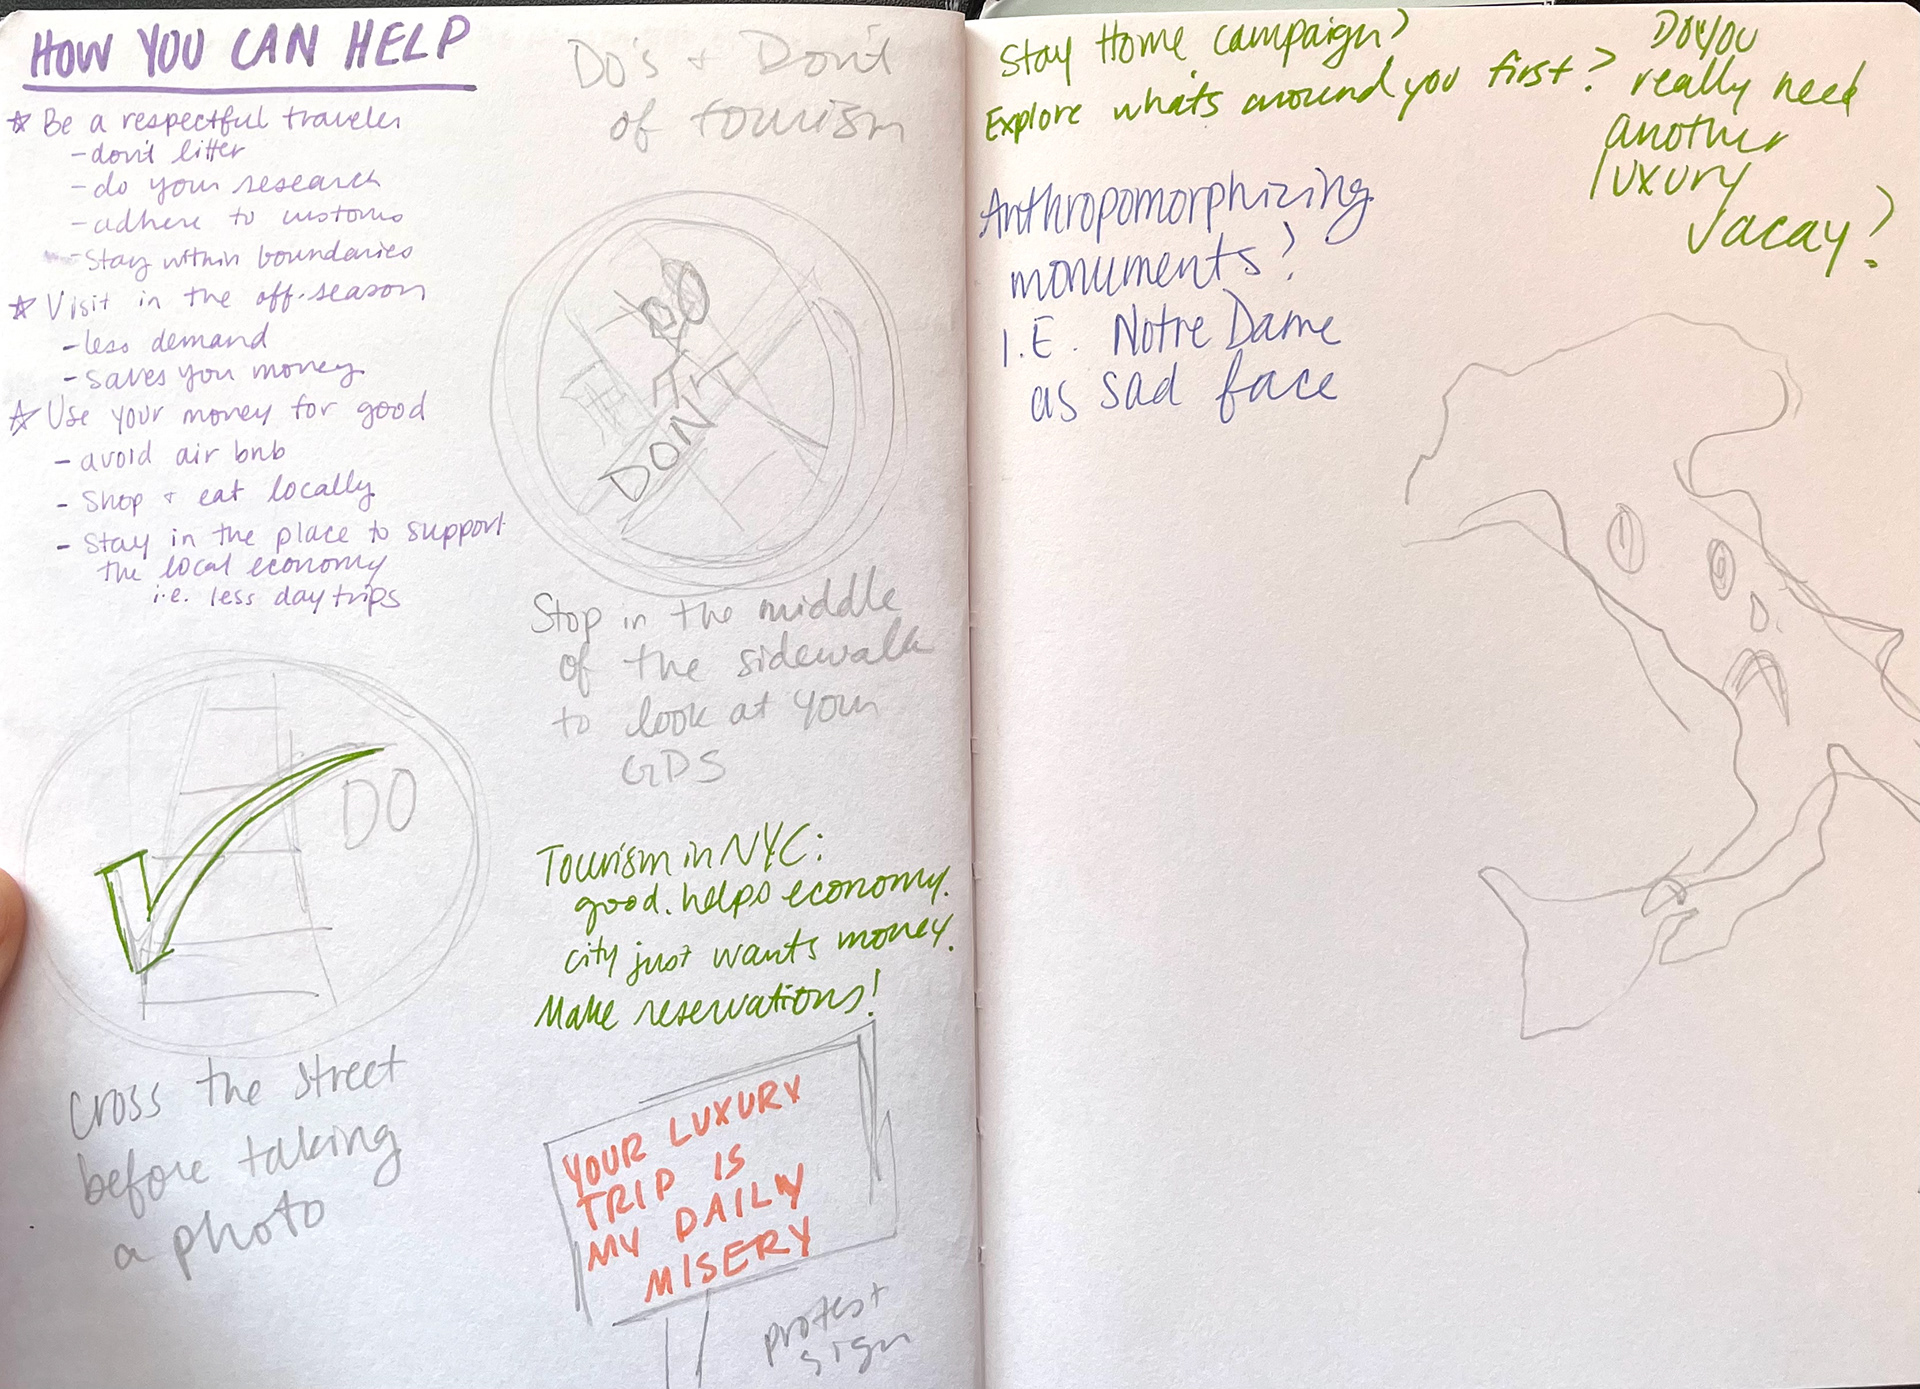 HOW YOU CAN HELP
☆ Be a respectful traveler
- don't litter
- do your research
- adhere to customs
- Stay within boundaries
☆ Visit in the off-season
- less demand
- saves you money
☆ Use your money for good
- avoid air bnb
- Shop + eat locally
- Stay in the place to support
the local economy
i.e. less day trips
Do's + Don't
of tourism
DO
DON'T
Stop in the middle
of the sidewalk
to look at your
GPS
DO
Cross the street
before taking
a photo
Tourism in NYC:
good. helps economy.
city just wants money.
Make reservations!
YOUR LUXURY
TRIP IS
MY DAILY
MISERY
protest
sign
Stay Home campaign?
Explore what's around you first?
Do you
really need
another
luxury
vacay?
Anthropomorphizing
monuments?
I.E. Notre Dame
as sad face